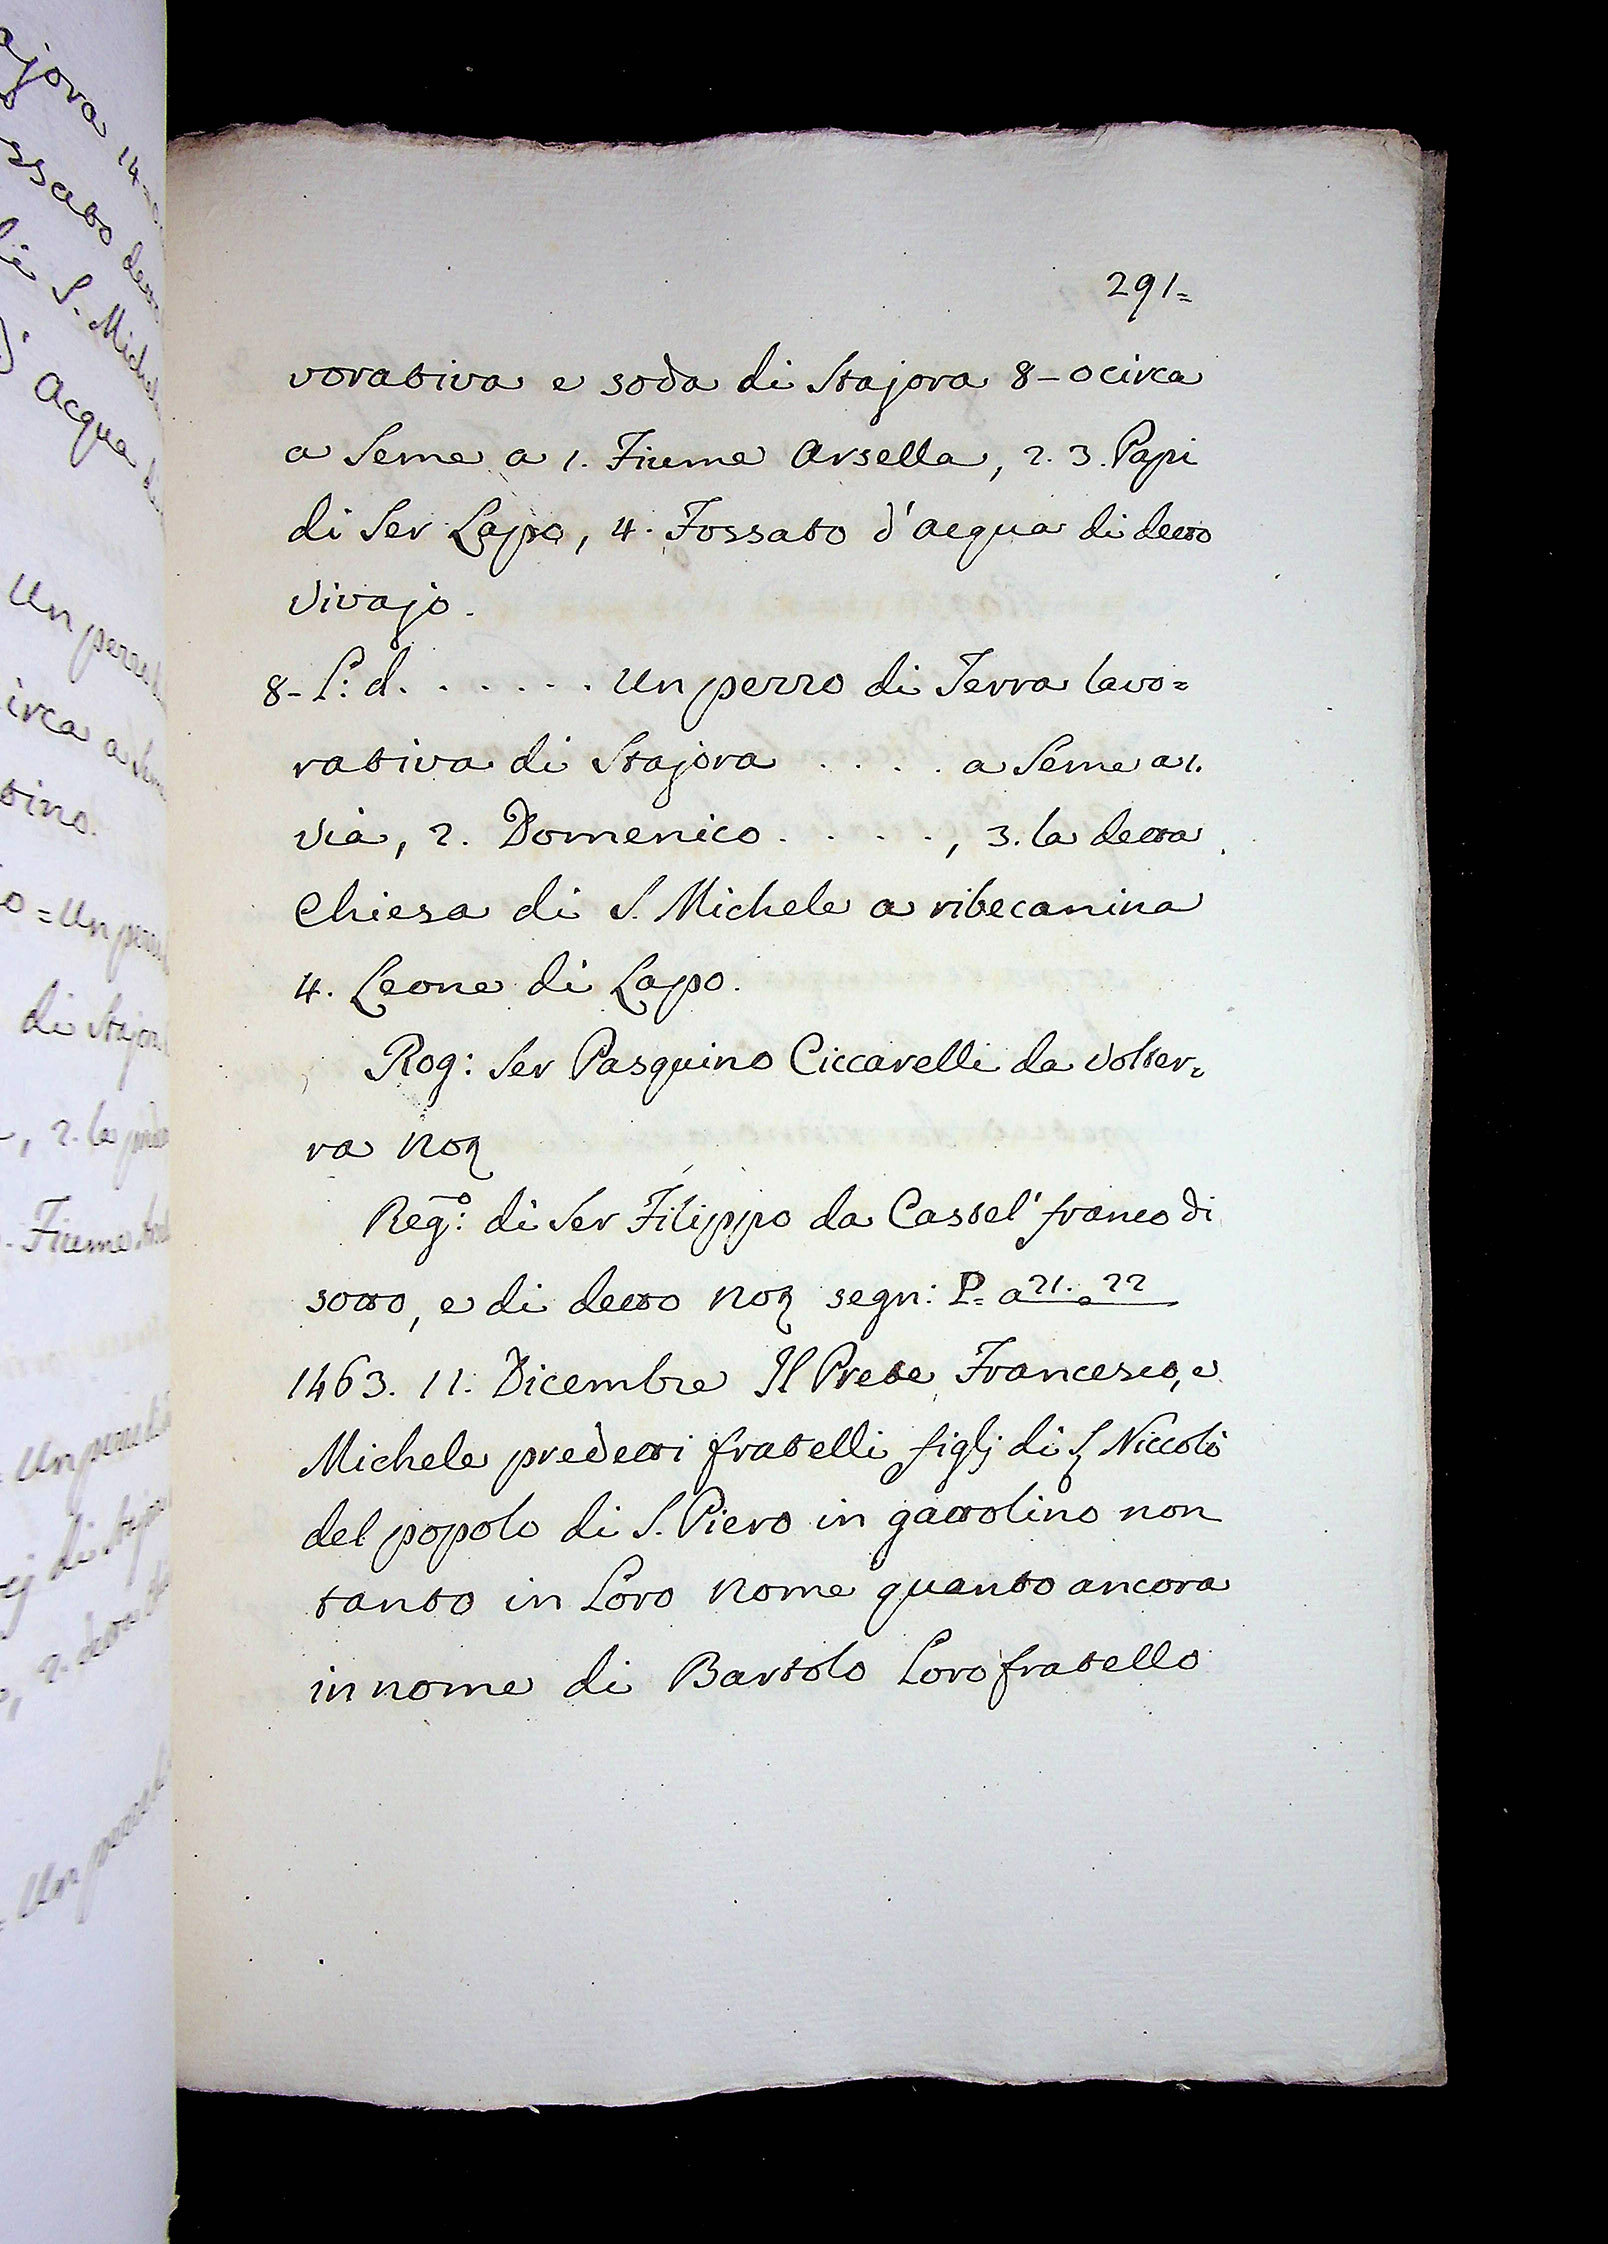 291=
vorativa e soda di Stajora 8-0 circa
a Seme a 1. Fiume Arsella, 2. 3. Papi
di Ser Lapo, 4. Fossato d'acqua di detto
Vivajo.
8- L: d. . . . . . . Un pezzo di Terra lavo=
rativa di Stajora . . . . a Seme a 1.
via, 2. Domenico . . . . , 3. la detta
Chiesa di S. Michele a ribecanina
4. Leone di Lapo.
Rog: Ser Pasquino Ciccarelli da Volter=
ra Noꝫ
Reg.º: di Ser Filippo da Castel' franco di
sotto, e di detto Noꝫ segn: P= a 21. a 22
1463. 11. Dicembre Il Prete Francesco, e
Michele predetti fratelli figlj di Niccolò
del popolo di S. Piero in gattolino non
tanto in Loro Nome quanto ancora
in nome di Bartolo Loro fratello
ajora 14
ssato
di S. Michel
Acqua
Un
irca a
= Un
di Stajor
, 2. la
Fiume
Un
di
2. detta
Un